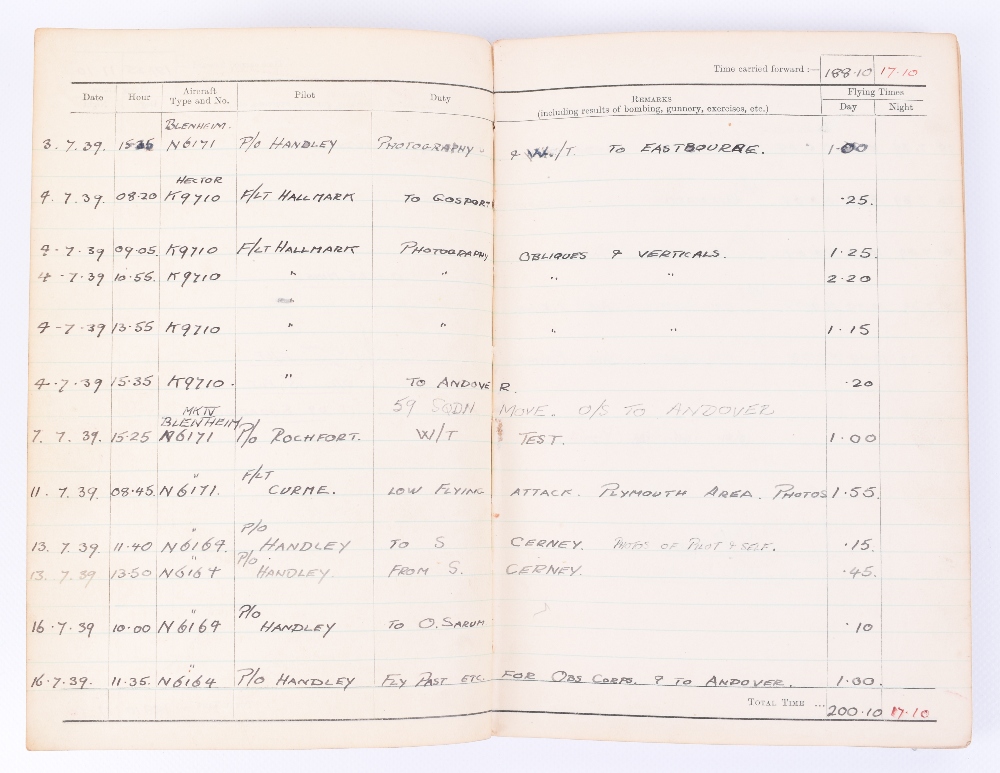 Time carried forward :— 188·10 17·10
Date Hour Aircraft Type and No. Pilot Duty REMARKS (including results of bombing, gunnery, exercises, etc.) Flying Times Day Night
BLENHEIM.
3. 7. 39. N6171 P/O HANDLEY PHOTOGRAPHY & W./T. TO EASTBOURNE. 1·00
HECTOR
4. 7. 39. 08·20 K9710 F/LT HALLMARK TO GOSPORT ·25.
4-7·39 09·05. K9710 F/LT HALLMARK PHOTOGRAPHY OBLIQUES & VERTICALS. 1·25.
4-7·39 10·55. K9710 " " " " 2·20
4-7·39 13·55 K9710 " " " " 1·15
4·7·39 15·35 K9710. " TO ANDOVER. ·20
59 SQDN MOVE. O/S TO ANDOVER
MK IV
BLENHEIM
7. 7. 39. 15·25 N6171 P/O ROCHFORT. W/T TEST. 1·00
" F/LT
11. 7. 39. 08·45. N6171. CURME. LOW FLYING ATTACK. PLYMOUTH AREA. PHOTOS 1·55.
" P/O
13. 7. 39. 11·40 N6164. HANDLEY TO S CERNEY. OF PILOT & SELF. ·15.
" P/O
13. 7. 39 13·50 N6164 HANDLEY. FROM S. CERNEY. ·45.
" P/O
16·7·39 10·00 N6164 HANDLEY TO O. SARUM ·10
"
16·7·39. 11·35. N6164 P/O HANDLEY FLY PAST ETC. FOR OBS CORPS. & TO ANDOVER. 1·00.
TOTAL TIME ... 200·10 17·10